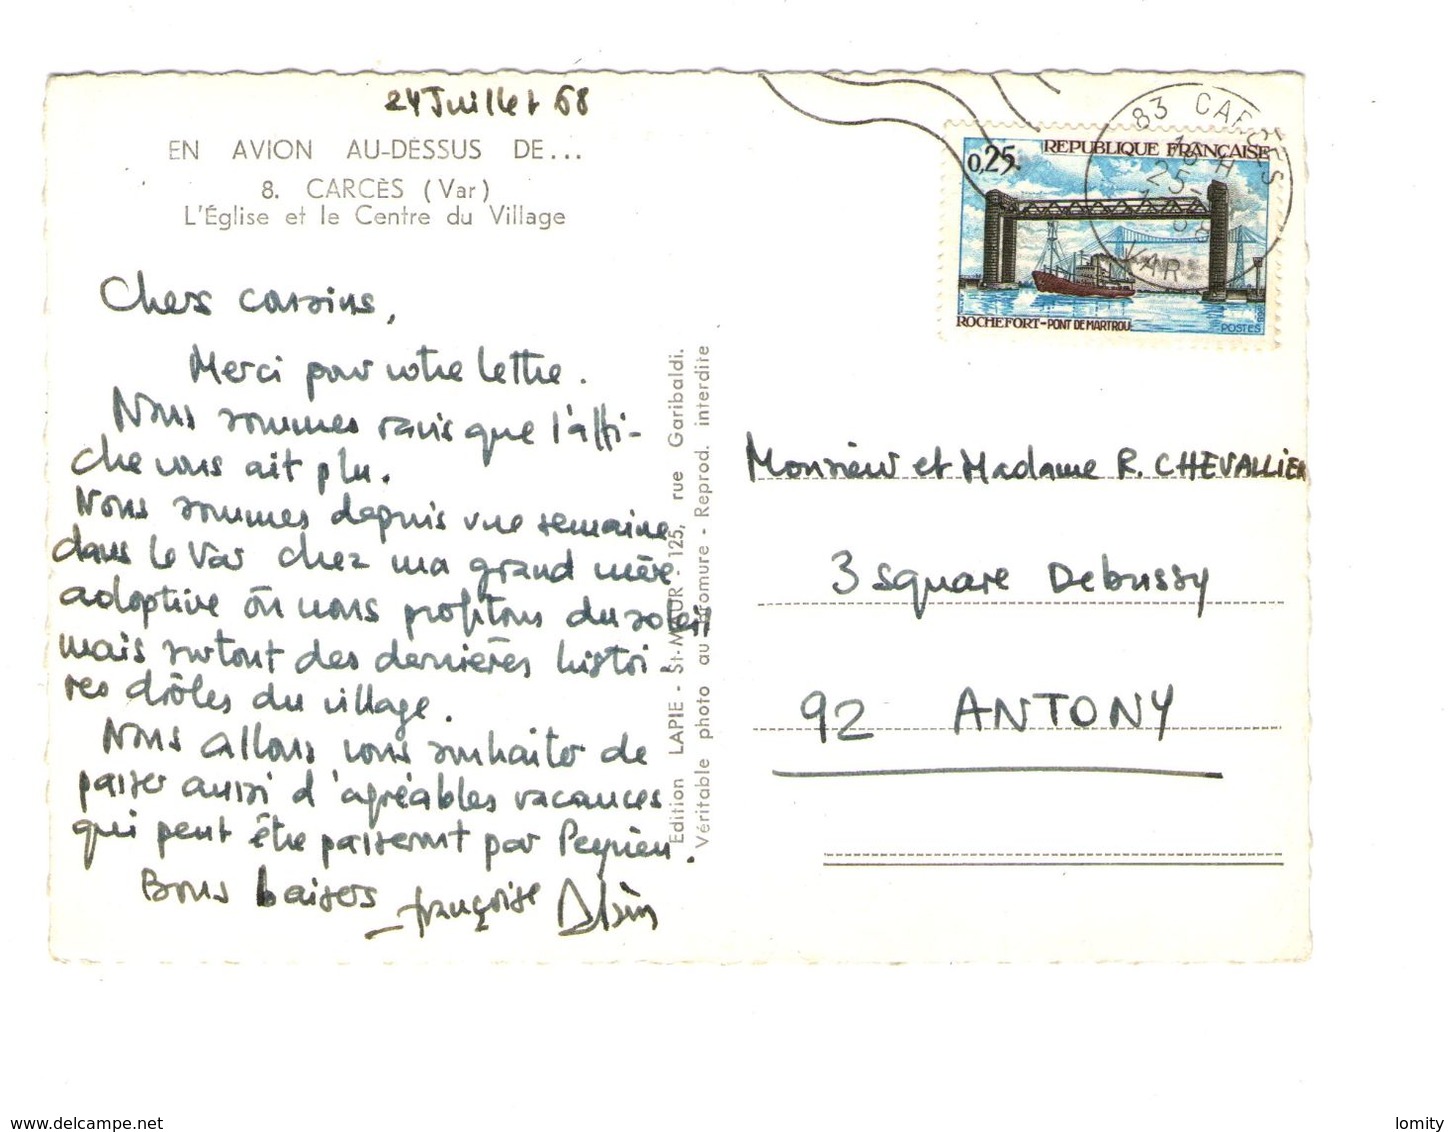 24 Juillet 68
EN AVION AU-DESSUS DE...
8. CARCÈS (Var)
L'Église et le Centre du Village
Chers cousins,
Merci pour votre lettre.
Nous sommes ravis que l'affi-
che vous ait plu.
Nous sommes depuis une semaine
dans le Var chez ma grand mère
adoptive où nous profitons du soleil
mais surtout des dernières histoi-
res drôles du village.
Nous allons vous souhaiter de
passer aussi d'agréables vacances
qui peut être passeront par Peyrieu.
Bons baisers françoise Alain
Edition LAPIE - St-MAUR - 125, rue Garibaldi.
Véritable photo au bromure - Reprod. interdite
83 CARCES
18 H
25-
VAR
0,25
REPUBLIQUE FRANÇAISE
ROCHEFORT-PONT DE MARTROU
POSTES
Monsieur et Madame R. CHEVALLIER
3 square Debussy
92 ANTONY
www.delcampe.net
lomity